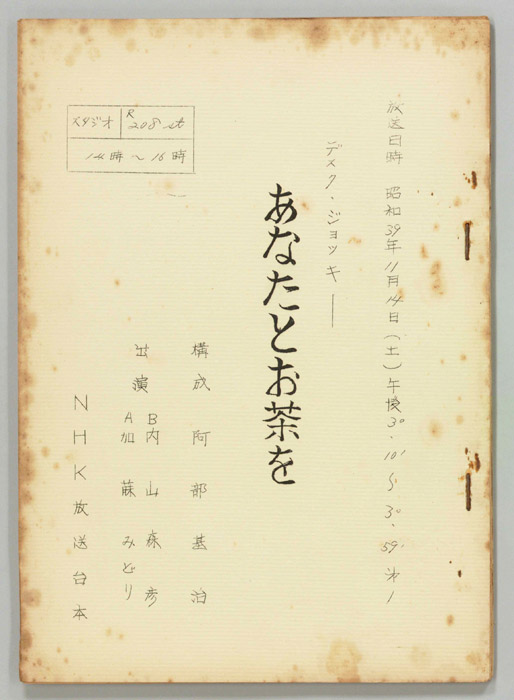 放送日時 昭和39年11月14日(土)午後3°·10'~3°·59' 第1
デスク·ジョッキー
あなたとお茶を
構成 阿部基治
出演
B内山森彦
A加藤みどり
スタジオ R208st
14時~16時
NHK放送台本